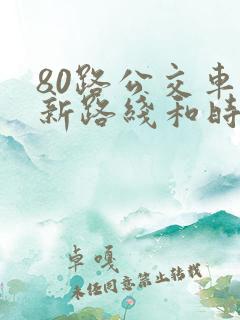 80路公交车
新路线和时
卓嘎
未经同意禁止转载